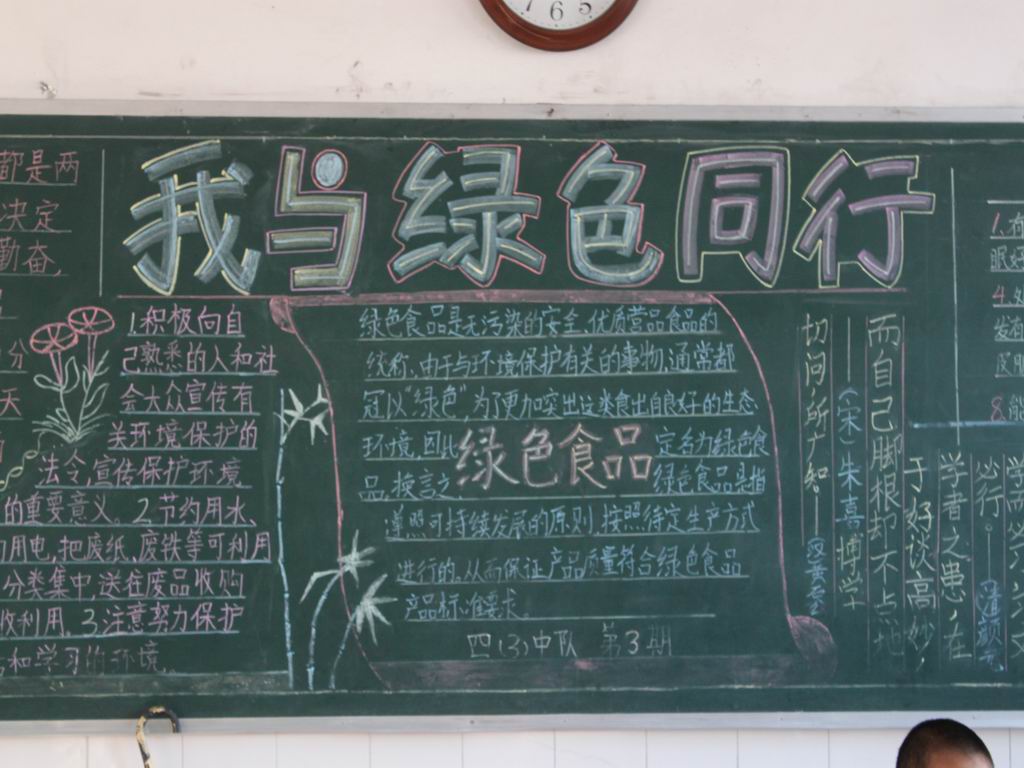 7 6 5
我与绿色同行
都是两
决定
勤奋,
分
天
1.积极向自
己熟悉的人和社
会大众宣传有
关环境保护的
法令,宣传保护环境
的重要意义。2.节约用水、
用电,把废纸、废铁等可利用
分类集中,送在废品收购
收利用。3.注意努力保护
和学习的环境。
绿色食品是无污染的安全、优质营品食品的
统称、由于与环境保护有关的事物,通常都
冠以“绿色”,为了更加突出这类食出自良好的生态
环境,因此 定名为绿色食
绿色食品
品,换言之, 绿色食品是指
遵照可持续发展的原则,按照待定生产方式
进行的,从而保证产品质量符合绿色食品
产品标准要求。
四(3)中队 第3期
1.有
眼好
4.
发有
皮肤
8.能
学而必习,习又
必行。——
学者之患,在
于好谈高妙,
而自己脚根却不点地
——(宋)朱熹 博学
切问所广知——